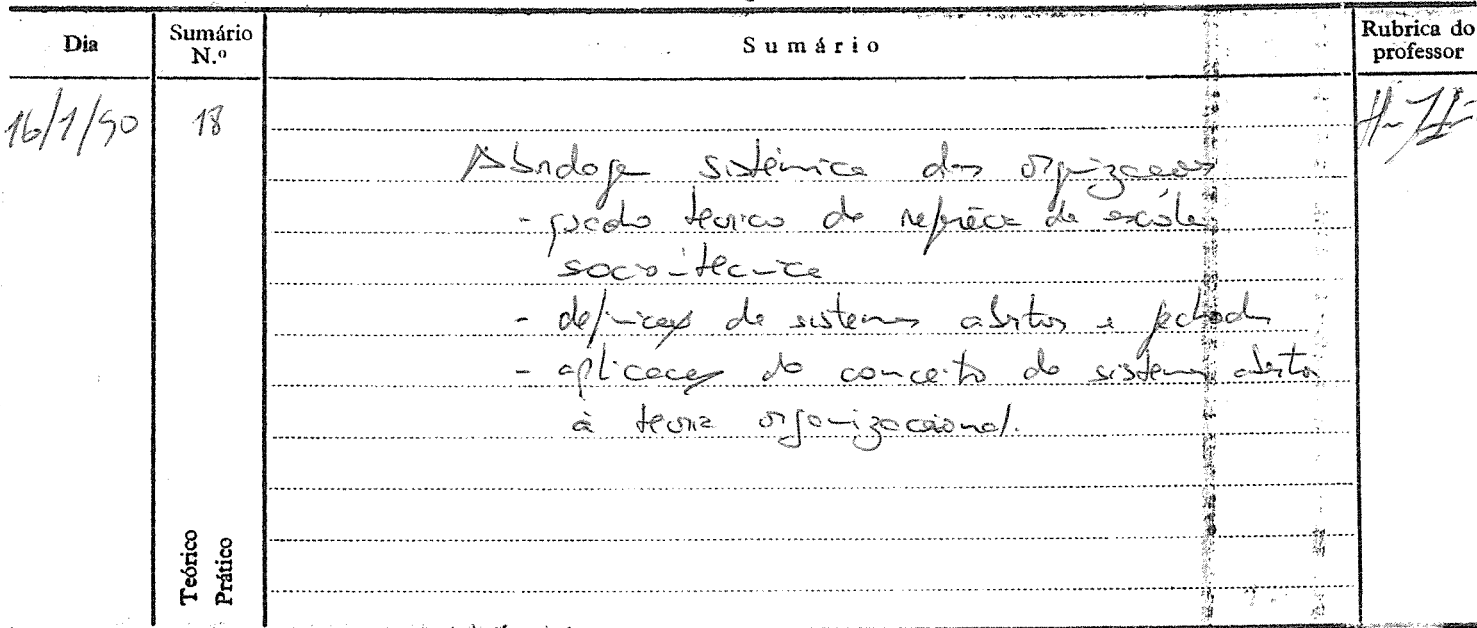 Dia
Sumário N.º
Sumário
Rubrica do professor
16/1/90
18
Abordagem sistémica das organizações
- quadro teórico de referência da escola
socio-técnica
- definição de sistemas abertos e fechados
- aplicação do conceito de sistema aberto
à teoria organizacional.
Teórico
Prático